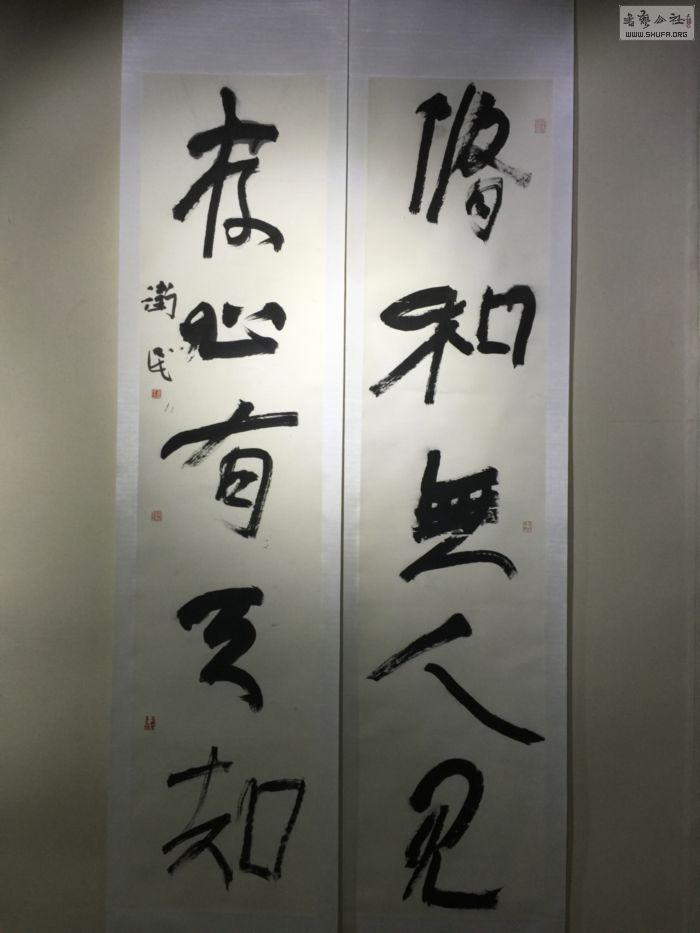 脩和無人見
存心有天知
衛民
書藝公社
WWW.SHUFA.ORG